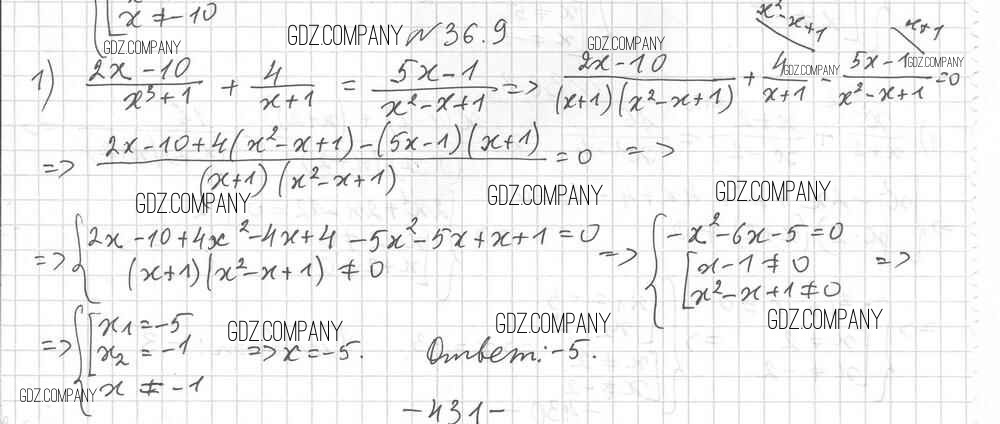 x ≠ -10
GDZ.COMPANY GDZ.COMPANY № 36.9 GDZ.COMPANY x²-x+1 x+1
1) (2x-10)/(x³+1) + 4/(x+1) = (5x-1)/(x²-x+1) => (2x-10)/((x+1)(x²-x+1)) + 4/(x+1) - (5x-1)/(x²-x+1) = 0 GDZ.COMPANY GDZ.COMPANY
=> (2x-10+4(x²-x+1)-(5x-1)(x+1))/((x+1)(x²-x+1)) = 0 =>
GDZ.COMPANY GDZ.COMPANY GDZ.COMPANY
=> { 2x-10+4x²-4x+4-5x²-5x+x+1=0 => { -x²-6x-5=0
(x+1)(x²-x+1) ≠ 0 [ x-1 ≠ 0 =>
x²-x+1 ≠ 0
GDZ.COMPANY GDZ.COMPANY GDZ.COMPANY
=> { [ x₁=-5
x₂ = -1 => x=-5. Ответ: -5.
x ≠ -1
GDZ.COMPANY
-431-